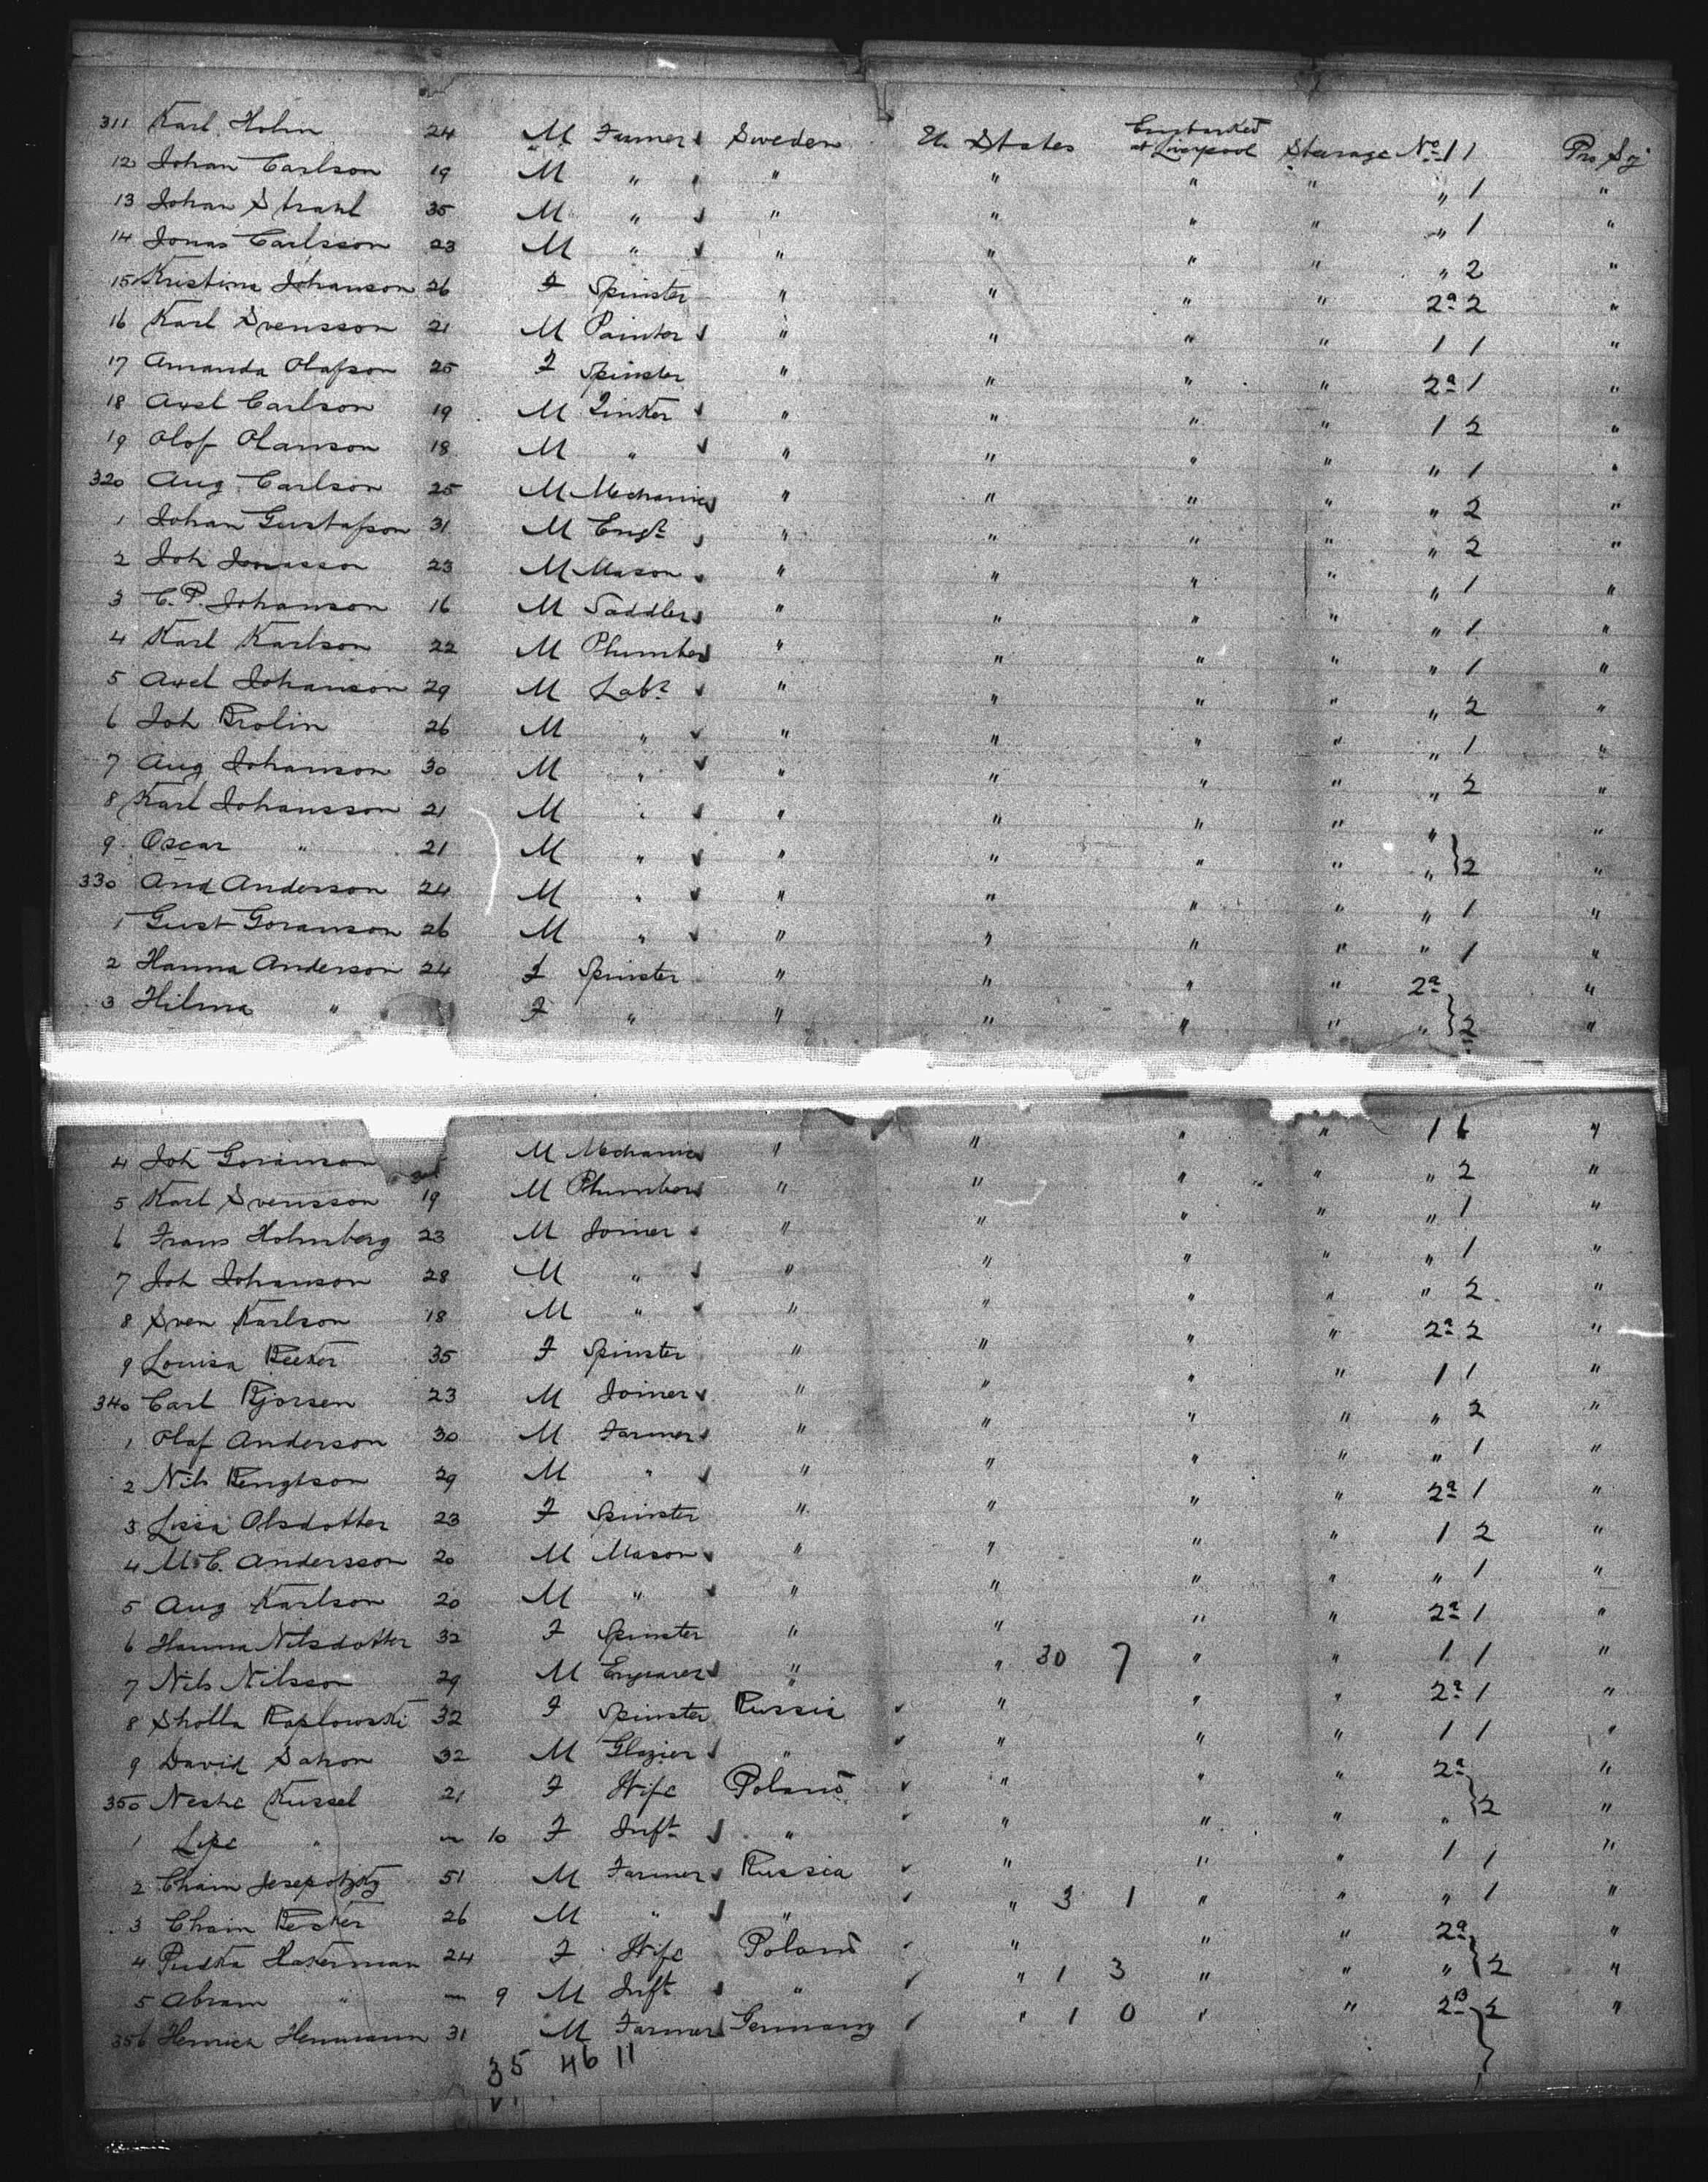 311 Karl Holm 24 M Farmer Sweden U. States Embarked at Liverpool Steerage No 1 1 Pro Soj
12 Johan Carlson 19 M " " " " " " 1 "
13 Johan Strahl 35 M " " " " " " 1 "
14 Jonas Carlsson 23 M " " " " " " 2 "
15 Kristina Johanson 26 F Spinster " " " " 2a 2 "
16 Karl Svensson 21 M Painter " " " " 1 1 "
17 Amanda Olafson 25 F Spinster " " " " 2a 1 "
18 Axel Carlson 19 M Tinker " " " " 1 2 "
19 Olof Olanson 18 M " " " " " " 1 "
320 Aug Carlson 25 M Mechanic " " " " " 2 "
1 Johan Gustafson 31 M Engr " " " " " 2 "
2 Joh Jonasson 23 M Mason " " " " " 1 "
3 C. P. Johanson 16 M Saddler " " " " " 1 "
4 Karl Karlson 22 M Plumber " " " " " 1 "
5 Axel Johanson 29 M Labr " " " " " 2 "
6 Joh Brolin 26 M " " " " " " 1 "
7 Aug Johanson 30 M " " " " " " 2 "
8 Karl Johansson 21 M " " " " " " "
9 Oscar " 21 M " " " " " " 2 "
330 And Anderson 24 M " " " " " " 1 "
1 Gust Goranson 26 M " " " " " " 1 "
2 Hanna Anderson 24 F Spinster " " " " 2a "
3 Hilma " F " " " " " " 2 "
4 Joh Goranson M Mechanic " " " " 1 "
5 Karl Svensson 19 M Plumber " " " " " 2 "
6 Frans Holmberg 23 M Joiner " " " " " 1 "
7 Joh Johanson 28 M " " " " " " 1 "
8 Sven Karlson 18 M " " " " " " 2 "
9 Louisa Becker 35 F Spinster " " " " 2a 2 "
340 Carl Bjorsen 23 M Joiner " " " " 1 1 "
1 Olaf Anderson 30 M Farmer " " " " " 2 "
2 Nils Bengtson 29 M " " " " " " 1 "
3 Lissa Olsdotter 23 F Spinster " " " " 2a 1 "
4 M. C. Andersson 20 M Mason " " " " 1 2 "
5 Aug Karlson 20 M " " " " " " 1 "
6 Hanna Nilsdotter 32 F Spinster " " " " 2a 1 "
7 Nils Nilsson 29 M Engraver " " 30 7 " " 1 1 "
8 Sholla Raplowski 32 F Spinster Russia " " " 2a 1 "
9 David Sahon 32 M Glazier " " " " 1 1 "
350 Neshe Kussel 21 F Wife Poland " " " 2a "
1 Lipe " 10 F Inft " " " " " 2 "
2 Chaim 51 M Farmer Russia " " " 1 1 "
3 Chain Becker 26 M " " " 3 1 " " " 1 "
4 Pudka Hakerman 24 F Wife Poland " " " 2a "
5 Abram " 9 M Inft " " 1 3 " " " 2 "
356 Henrich Hermann 31 M Farmer Germany " 1 0 " " 2B 2 "
35 46 11